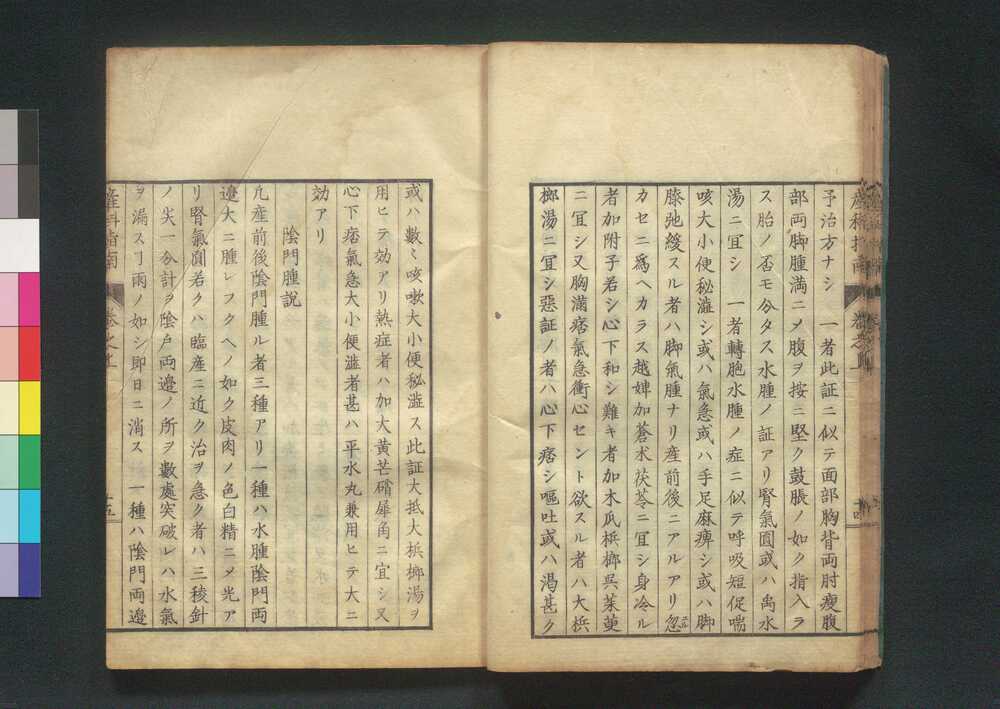 予治方ナシ　一者此証ニ似テ面部胸背両肘瘦腹
部両脚腫満ニメ腹ヲ按ニ堅ク鼓脹ノ如ク指入ラ
ス胎ノ否モ分タス水腫ノ証アリ腎氣圓或ハ禹水
湯ニ宜シ　一者轉胞水腫ノ症ニ似テ呼吸短促喘
咳大小便秘澁シ或ハ氣急或ハ手足麻痺シ或ハ脚
膝弛緩スル者ハ脚氣腫ナリ産前後ニアルアリ忽
カセニ為ヘカラス越婢加蒼朮茯苓ニ宜シ身冷ル
者加附子若シ心下和シ難キ者加木瓜梹榔呉茱萸
ニ宜シ又胸滿痞氣急衝心セント欲スル者ハ大梹
榔湯ニ宜シ惡証ノ者ハ心下痞シ嘔吐或ハ渇甚ク
或ハ數〻咳嗽大小便秘澁ス此証大抵大梹榔湯ヲ
用ヒテ効アリ熱症者ハ加大黄芒硝犀角ニ宜シ又
心下痞氣急大小便澁者甚ハ平水丸兼用ヒテ大ニ
効アリ
陰門腫説
凡産前後陰門腫ル者三種アリ一種ハ水腫陰門両
邉大ニ腫レフクヘノ如ク皮肉ノ色白精ニメ光ア
リ腎氣圓若クハ臨産ニ近ク治ヲ急ク者ハ三稜針
ノ尖一分計ヲ陰戸両邉ノ所ヲ數處突破レハ水氣
ヲ漏スヿ雨ノ如シ即日ニ消ス　一種ハ陰門両邉
産科指南
巻之上
十五